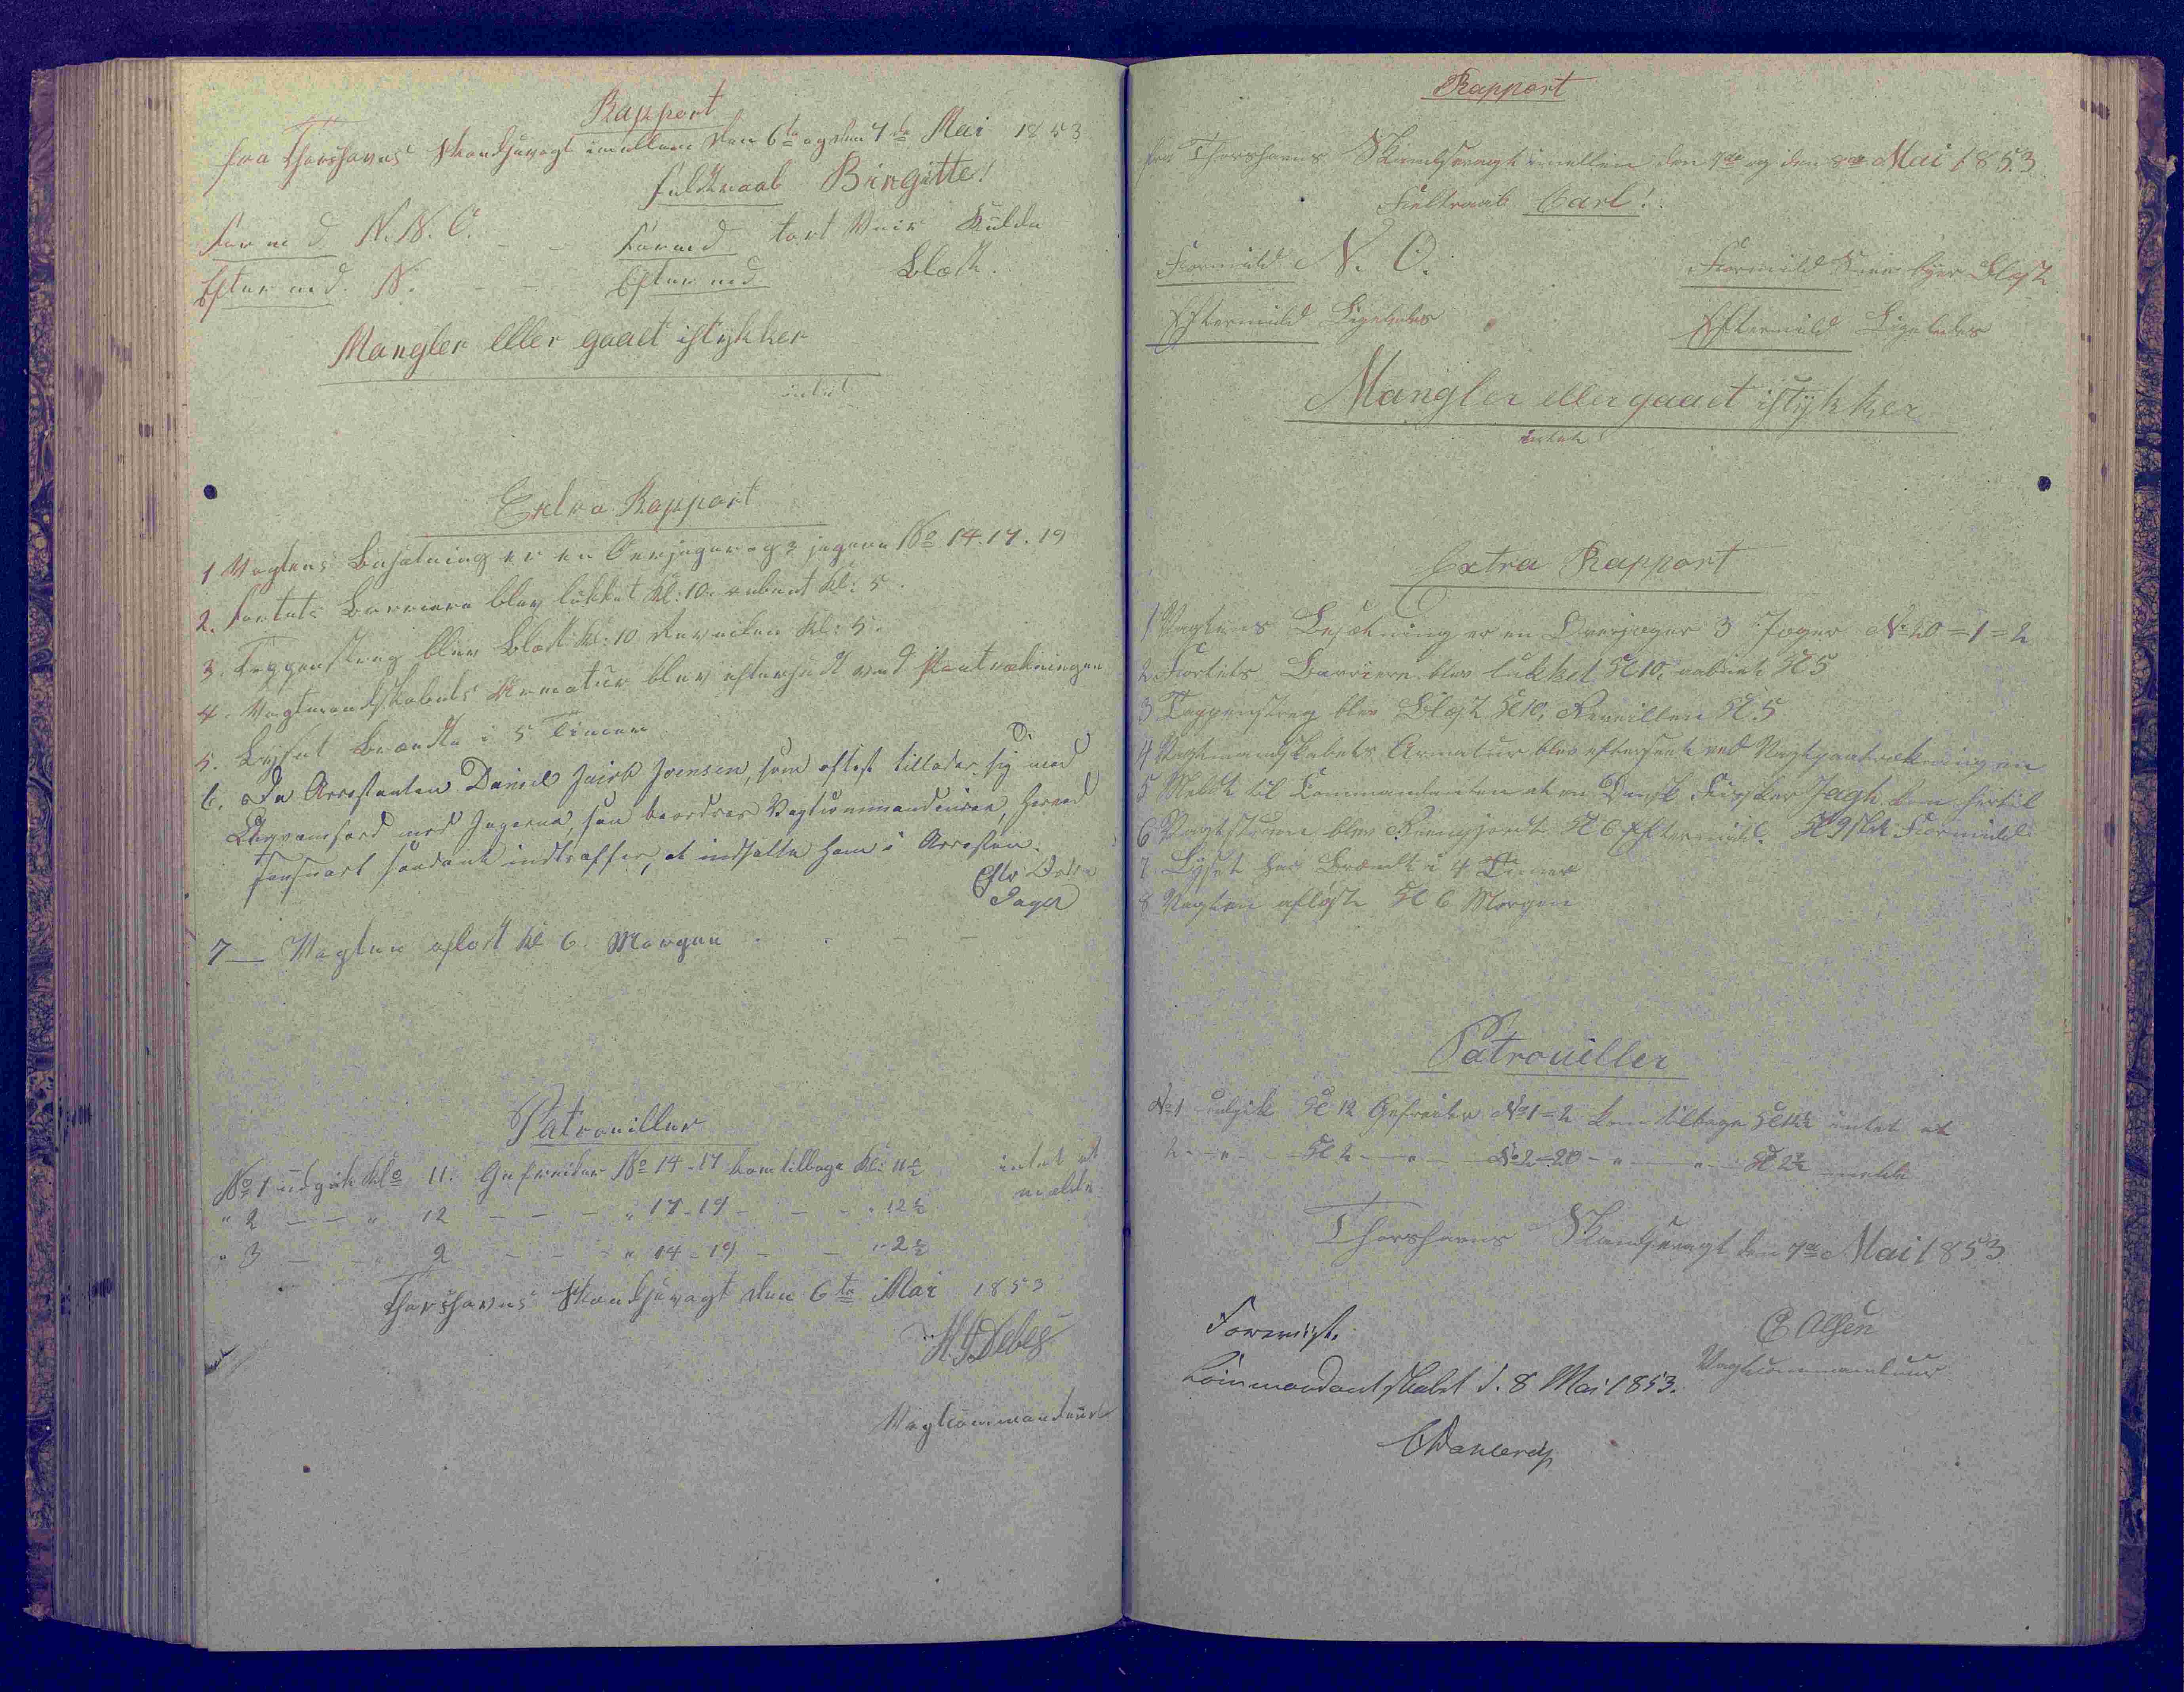 Rapport
fra Thorshavns Skandsevagt imellem den 6te og den 7de Mai 1853
Feldtraab Birgitte!
Form d. N. N. O. - - Formd tort Veir Kulde
Efter md. N. - - Eftermd Blæst.
Mangler eller gaaet istykker
intet
Extra Rapport
1 Vagtens Besætning er en Overjæger og 3 jægere No 14. 17. 19
2. Fortets Barriere blev lukket Kl: 10. aabent Kl: 5.
3. Tappenstreg blev Blæst kl: 10 Reveillen Kl: 5.
4. Vagtmandskabets Armatur blev efterseet ved
5. Lyset Brændte i 5 Timer
6. Da Arrestanten Daniel Jacob Joensen, som oftest tillader sig med
med Jægerne, saa beordres Vagtcommandeuren, herved
saasnart saadant indtræffer, at indsætte ham i Arresten.
Eftr Ordre
7 — Vagten afløst kl 6. Morgen . - - -
Patrouiller
No 1 udgik Klo 11. Gefreider No 14-17 kom tilbage Kl: 11½ intet at
" 2 - - " 12 - - - " 17-19 - - - " 12½ melde
" 3 - - " 2 - - - " 14-19 - - " 2½
Thorshavns Skandsevagt den 6te Mai 1853
H. J. Debes
Vagtcommandeur
Rapport
fra Thorshavns Skandsevagt imellem den 7de og den 8de Mai 1853
Feltraab Carl!
Formidd N. O. Formidd Snee byer Blæst
Eftermidd Ligeledes Eftermidd Ligeledes
Mangler eller gaaet istykker
intet
Extra Rapport
1 Vagtens Besætning er en Overjæger 3 Jæger No 20 = 1 = 2
2 Fortets Barriere blev lukket Kl 10, aabent Kl 5
3 Tappenstreg blev Blæst Kl 10, Reveillen Kl 5
4 Vagtmandskabets Armatur blev efterseet ved Vagtparatrækningen
5 Meldt til Commandanten at en Dansk Fisker Jagt kom hertil
6 Vagtstuen blev Reengjordt Kl 6 Eftermidd. Kl 9 Formidd
7 Lyset har Brændt i 4 Timer
8 Vagten afløst Kl 6 Morgen
Patrouiller
No 1 udgik Kl 12 Gefreider No 1 = 2 kom tilbage Kl 12½ intet at
2 - " - Kl 2 - " - No 2 = 20 - " - " - Kl 2½ melde
Thorshavns Skandsevagt den 7de Mai 1853
C Olsen
Vagtcommandeur
Foreviist.
Commandantskabet d. 8 Mai 1853.
CDahlerup